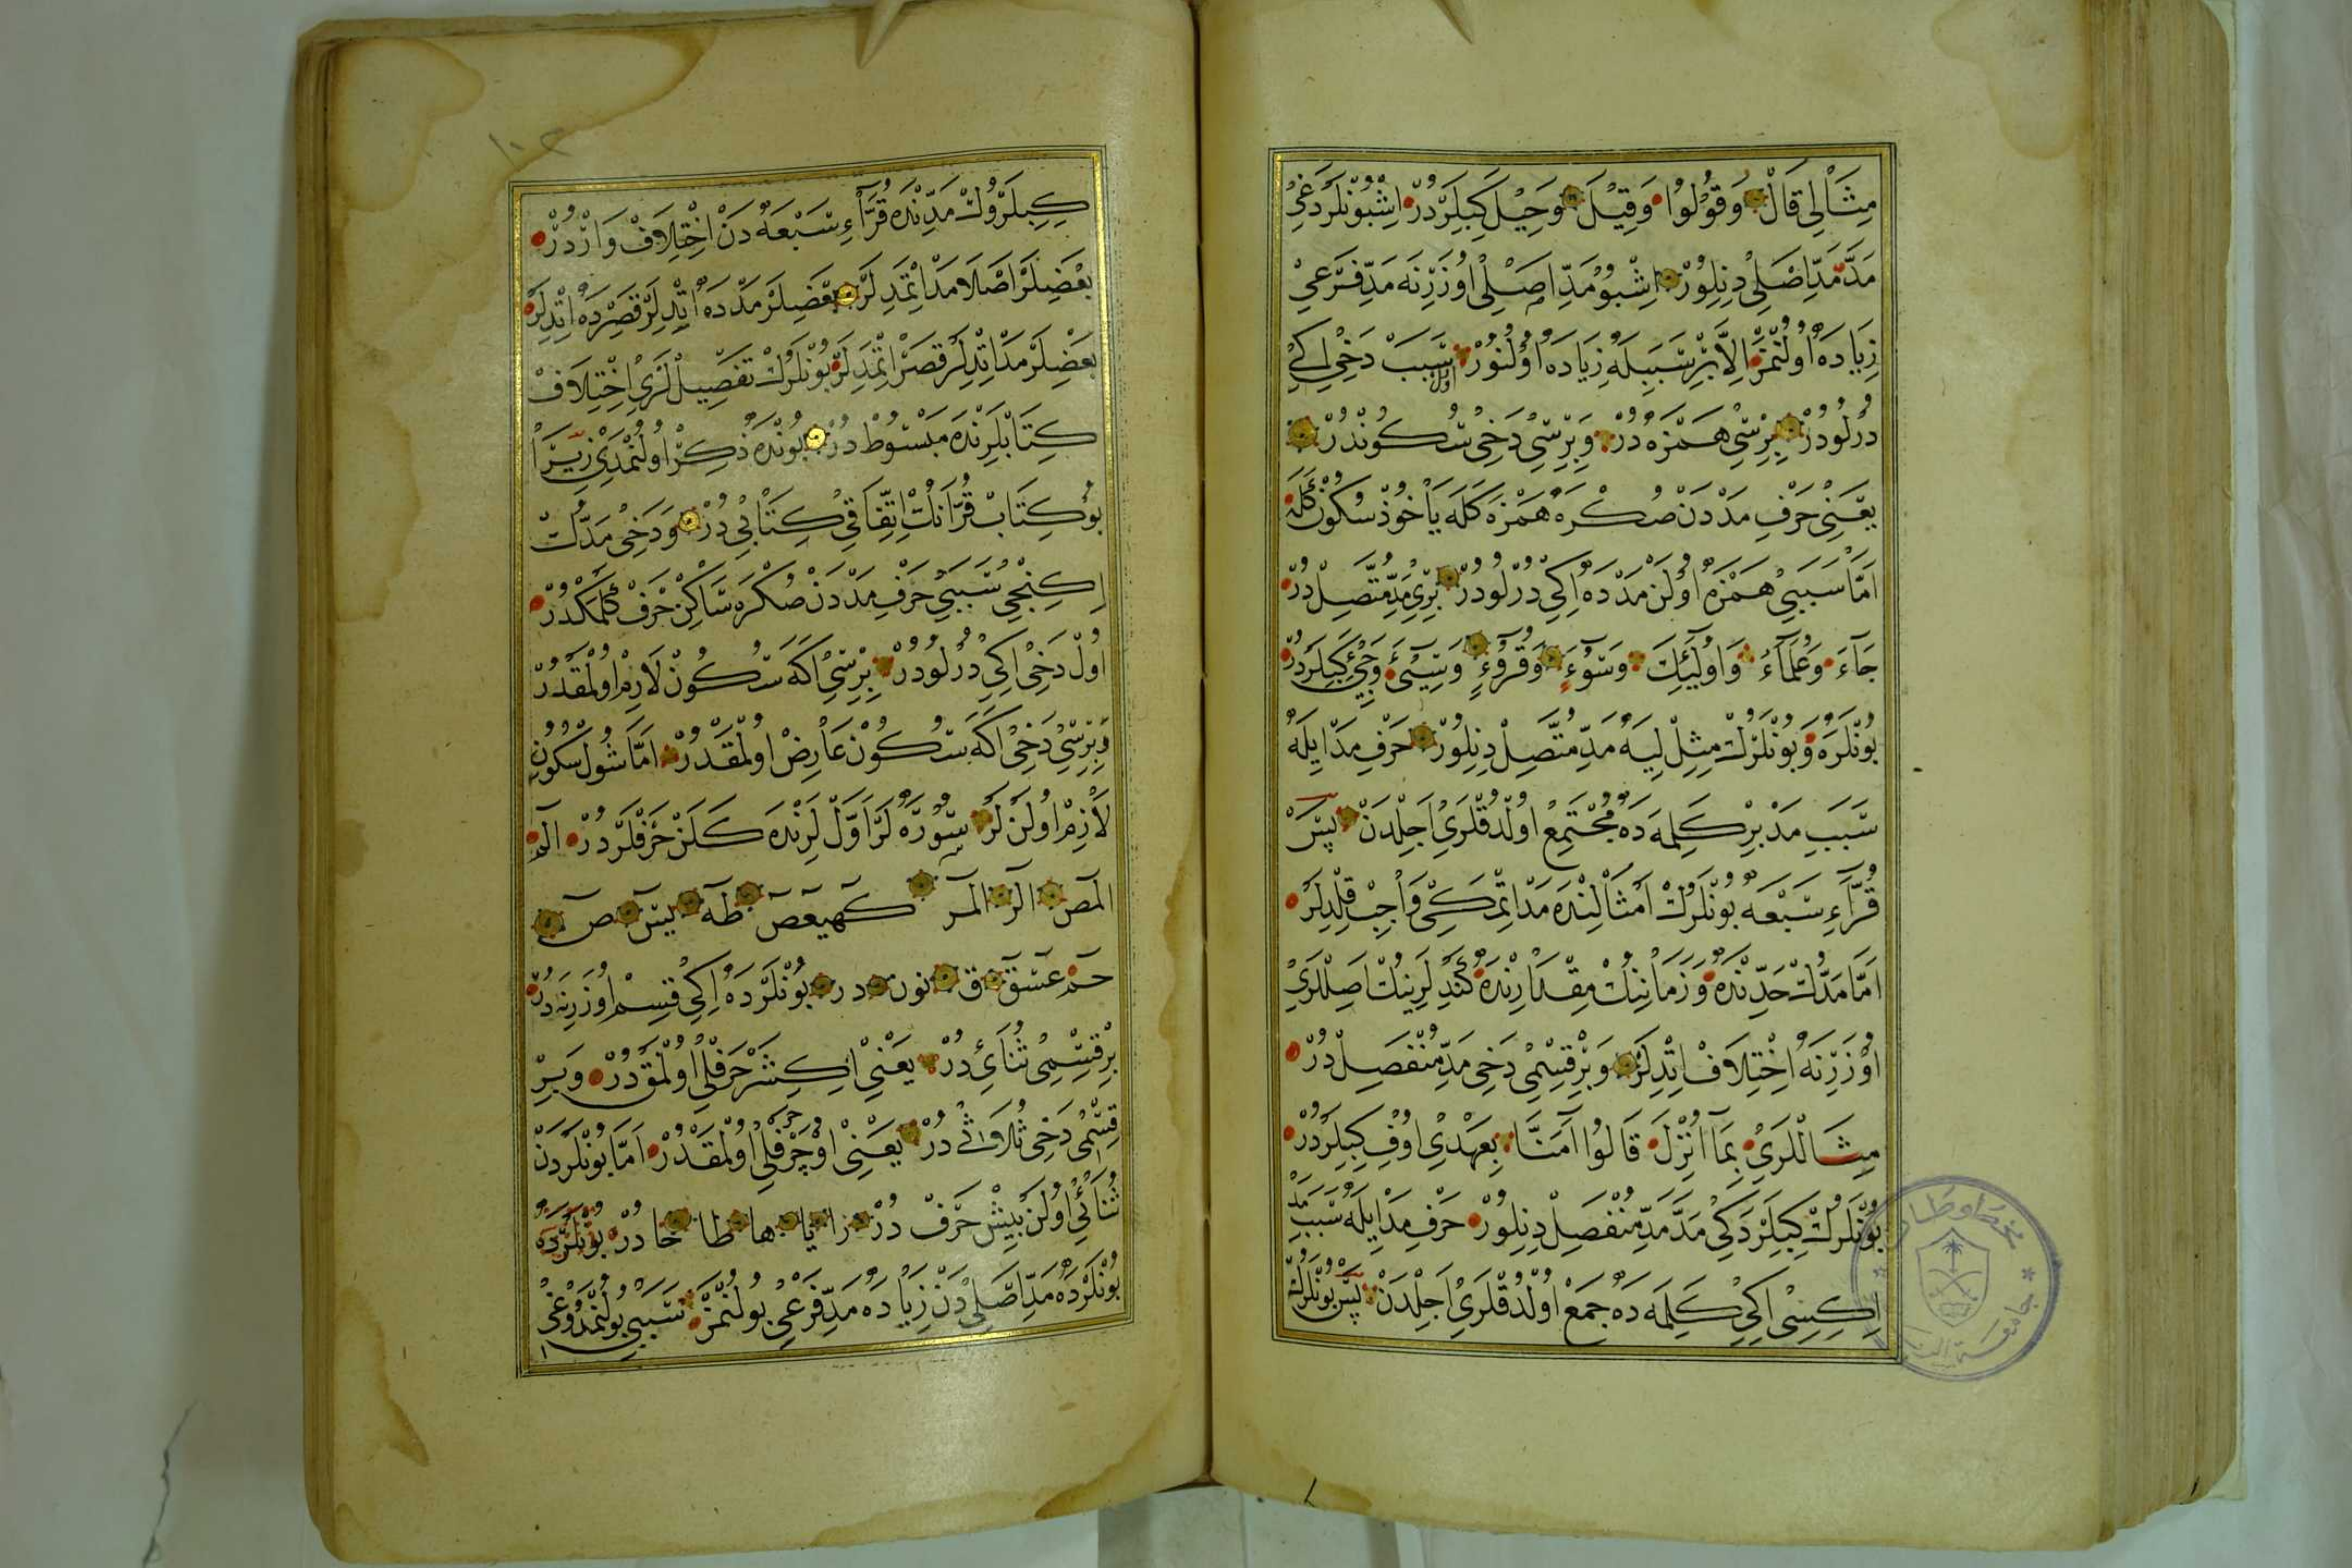 مِثَالِي قَالَ وَقُولُوا وَقِيلَ وَحِيلَ كِبِيلَرْدُرْ اِشْبُونْلَرْدَغِي
مَدَّ مَدِّ اَصْلِي دِنِلُورْ اِشْبُو مَدِّ اَصْلِي اُوزَرِنَه مَدِّ فَرْعِي
زِيَادَه اُولُنْمَزْ اِلَّا بِرْ سَبَبِيلَه زِيَادَه اُولُنُورْ اول سَبَبْ دَخِي اِكِي
دُرْلُودُرْ بِرِسِي هَمْزَه دُرْ وَبِرِسِي دَخِي سُكُونْدُرْ
يَعْنِي حَرْفِ مَدْدَنْ صُكْرَه هَمْزَه كَلَه يَاخُوذْ سُكُونْ كَلَه
اَمَّا سَبَبِي هَمْزَه اُولَنْ مَدْدَه اِكِي دُرْلُودُرْ بِرِي مَدِّ مُتَّصِلْ دُرْ
جَآءَ وَعُلَمَآءُ وَاُولَٓئِكَ وَسُوٓءَ وَقُرُوٓءٍ وَسِيٓئَ وَجِيٓئَ كِبِيلَرْدُرْ
بُونْلَرَه وَبُونْلَرُكْ مِثِلْلِيَه مَدِّ مُتَّصِلْ دِنِلُورْ حَرْفِ مَدْ اِيلَه
سَبَبِ مَدْ بِرْ كَلِمَه دَه مُجْتَمِعْ اُولْدُقْلَرِي اَجِلْدَنْ پَسْ
قُرَّآءِ سَبْعَه بُونْلَرُكْ اَمْثَالِنْدَه مَدْ اِتْمَكِي وَاجِبْ قِلْدِلَرْ
اَمَّا مَدُّكْ حَدِّنْدَه وَزَمَانِنُكْ مِقْدَارِنْدَه كَنْدِلَرِينُكْ اَصِلْلَرِي
اُوزَرِنَه اِخْتِلَافْ اِتْدِلَرْ وَبِرْ قِسْمِي دَخِي مَدِّ مُنْفَصِلْ دُرْ
مِثَالْلَرِي بِمَٓا اُنْزِلَ قَالُوا آمَنَّا بِعَهْدِي اُوفِ كِبِيلَرْدُرْ
بُونْلَرُكْ كِبِيلَرْدَكِي مَدَّ مَدِّ مُنْفَصِلْ دِنِلُورْ حَرْفِ مَدْ اِيلَه سَبَبِ مَدْ
اِكِسِي اِكِي كَلِمَه دَه جَمَعْ اُولْدُقْلَرِي اَجِلْدَنْ پَسْ بُونْلَرُكْ
كِبِيلَرُوكْ مَدِّنْدَه قُرَّآءِ سَبْعَه دَنْ اِخْتِلَافْ وَارْدُرْ
بَعْضِلَرْ اَصْلَا مَدْ اِتْمَدِلَرْ بَعْضِلَرْ مَدْدَه اِتْدِلَرْ قَصِرْدَه اِتْدِلَرْ
بَعْضِلَرْ مَدْ اِتْدِلَرْ قَصَرْ اِتْمَدِلَرْ بُونْلَرُكْ تَفَصِيلْلَرِي اِخْتِلَافْ
كِتَابْلَرِنْدَه مَبْسُوطْ دُرْ بُونْدَه ذِكِرْ اُولُنْمَدِي زِيرَا
بُو كِتَابْ قُرْآنُكْ اِتِّفَاقِي كِتَابِي دُرْ وَدَخِي مَدُّكْ
اِكِنْجِي سَبَبِي حَرْفِ مَدْدَنْ صُكْرَه سَاكِنْ حَرْفْ كَلْمَكْدُرْ
اُولْ دَخِي اِكِي دُرْلُودُرْ بِرِسِي اَكَه سُكُونْ لَازِمْ اُولْمَقْدُرْ
وَبِرِسِي دَخِي اَكَه سُكُونْ عَارِضْ اُولْمَقْدُرْ اَمَّا شُولْ سُكُونِ
لَازِمْ اُولَنْلَرْ سُورَه لَرْ اَوَّلْلَرِنْدَه كَلَنْ حَرْفْلَرْدُرْ الٓمٓ
الٓمٓصٓ الٓرٰ الٓمٓرٰ كٓهيعٓصٓ طٰهٰ يسٓ صٓ
حٰمٓ عٓسٓقٓ قٓ نون در بُونْلَرْدَه اِكِي قِسِمْ اُوزَرِنَه دُرْ
بِرْ قِسْمِي ثُنَائِي دُرْ يَعْنِي اِكِيشَرْ حَرْفْلِي اُولْمَقْدُرْ وَبِرْ
قِسْمِي دَخِي ثُلَاثِي دُرْ يَعْنِي اُوچَرْ حَرْفْلِي اُولْمَقْدُرْ اَمَّا بُونْلَرْدَنْ
ثُنَائِي اُولَنْ بِيشْ حَرْفْ دُرْ را يا ها طا حا دُرْ بُونْلَرْدَه
بُونْلَرْدَه مَدِّ اَصْلِي دَنْ زِيَادَه مَدِّ فَرْعِي بُولُنْمَزْ سَبَبِي بُولُنْمَدُوغِي
جامعة